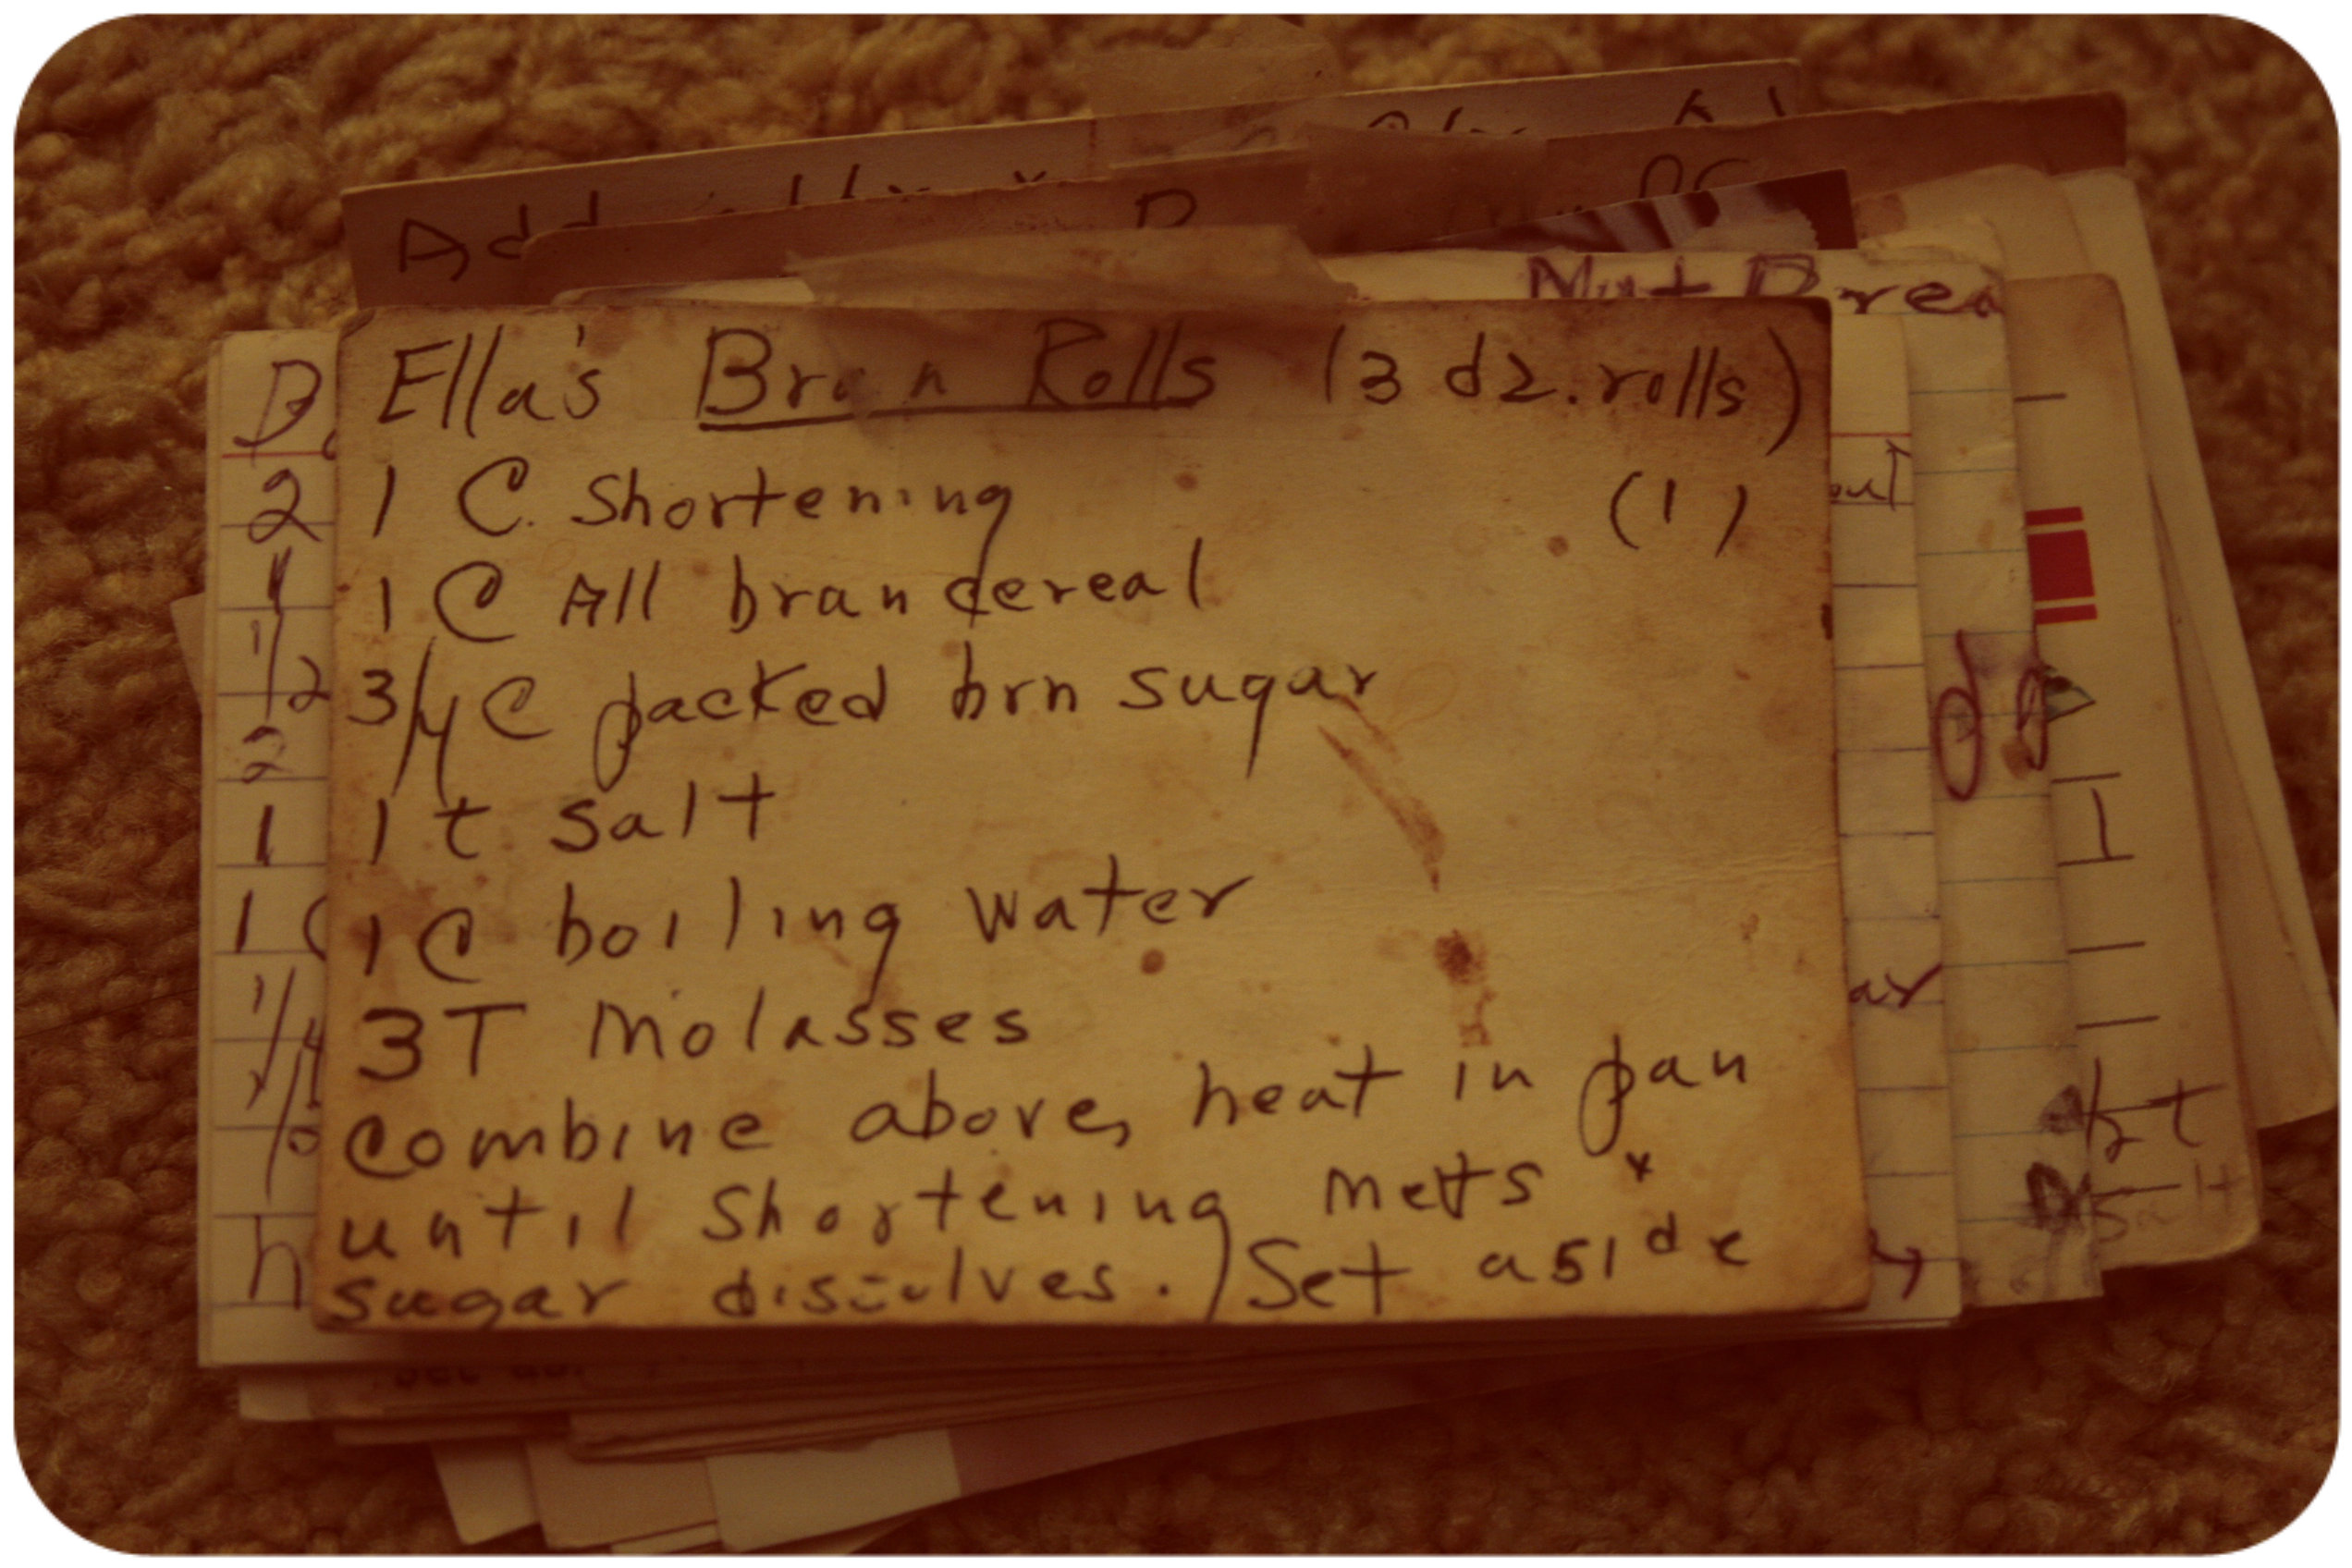 Ella's Bran Rolls (3 dz. rolls)
1 C. Shortening (1)
1 C All bran cereal
3/4 C packed brn sugar
1 t salt
1 C boiling water
3 T Molasses
Combine above, heat in pan
until Shortening melts &
sugar dissolves. Set aside
Add
Nut Brea
2
1
1/2
2
1
1 C
1/4
h
ar
1